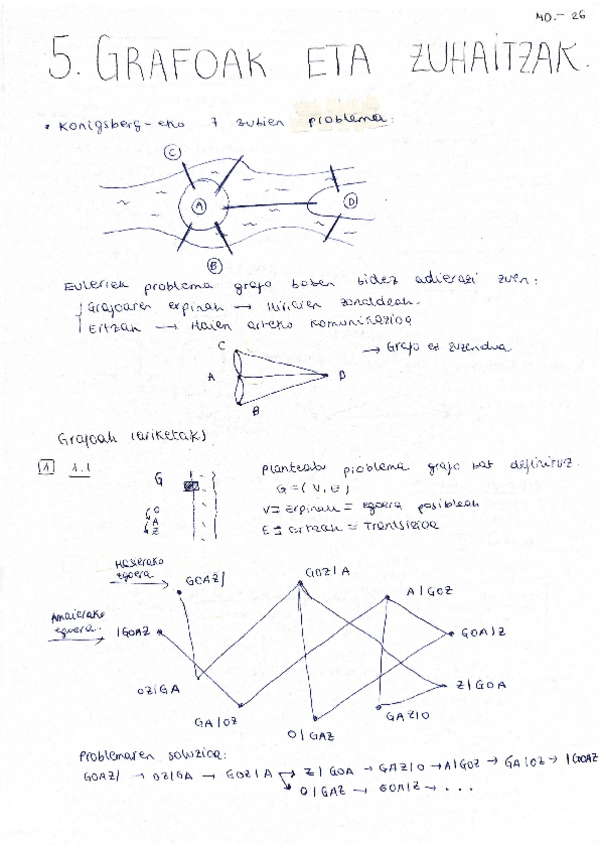 MD.- 26
5. GRAFOAK ETA ZUHAITZAK.
• Konigsberg-eko 7 zubien problema:
C
A
D
B
Eulerrek problema grafo baten bidez adierazi zuen:
Grafoaren erpinak → Hiriaren zonaldeak.
Ertzak → Haien arteko komunikazioa
C
→ Grafo ez zuzendua
A
D
B
Grafoak (ariketak)
1 1.1
Planteatu problema grafo bat definituz.
G
G = (V, E)
V = Erpinak = egoera posibleak
O
A
Z
E = Ertzak = Trantsizioa
Hasierako egoera
GOAZ/
GOZ/A
A/GOZ
Amaierako egoera.
/GOAZ
GOA/Z
OZ/GA
Z/GOA
GA/OZ
GAZ/O
O/GAZ
Problemaren soluzioa:
GOAZ/ → OZ/GA → GOZ/A → Z/GOA → GAZ/O → A/GOZ → GA/OZ → /GOAZ
O/GAZ → GOA/Z → . . .